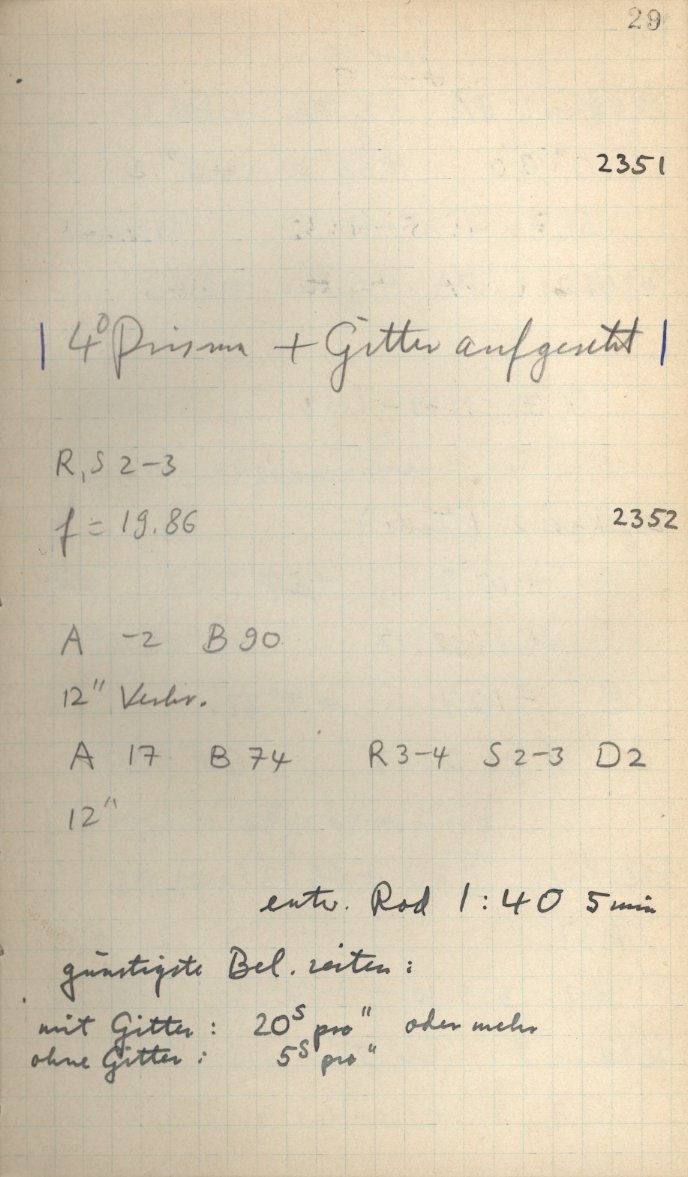 29
2351
| 4° Prisma + Gitter aufgesetzt |
R, S 2-3
f = 19.86
2352
A -2 B 90
12" Verbr.
A 17 B 74 R 3-4 S 2-3 D2
12"
entw. Rod 1:40 5 min
günstigste Bel. zeiten:
mit Gitter: 20ˢ pro " oder mehr
ohne Gitter: 5ˢ pro "